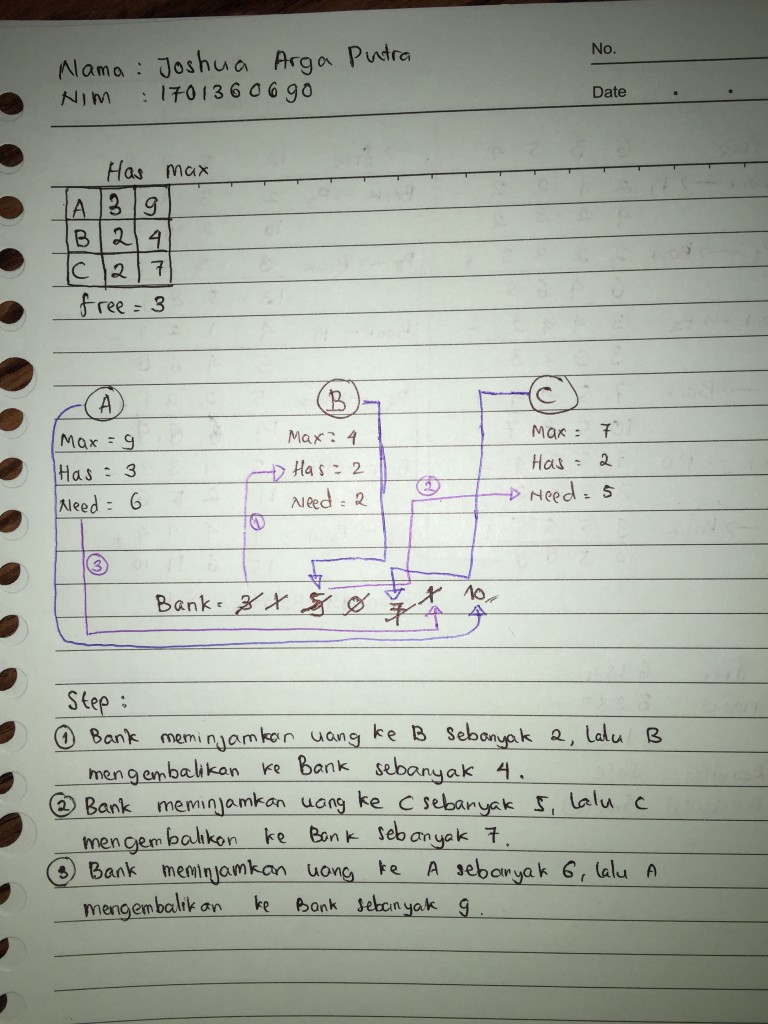 No.
Date . .
Nama : Joshua Arga Putra
NIM : 1701360690
Has max
A 3 9
B 2 4
C 2 7
free = 3
A B C
Max = 9 Max = 4 Max = 7
Has = 3 Has = 2 Has = 2
Need = 6 Need = 2 Need = 5
① ② ③
Bank = 3 1 5 0 7 1 10
Step :
① Bank meminjamkan uang ke B sebanyak 2, lalu B
mengembalikan ke Bank sebanyak 4.
② Bank meminjamkan uang ke C sebanyak 5, lalu C
mengembalikan ke Bank sebanyak 7.
③ Bank meminjamkan uang ke A sebanyak 6, lalu A
mengembalikan ke Bank sebanyak 9.